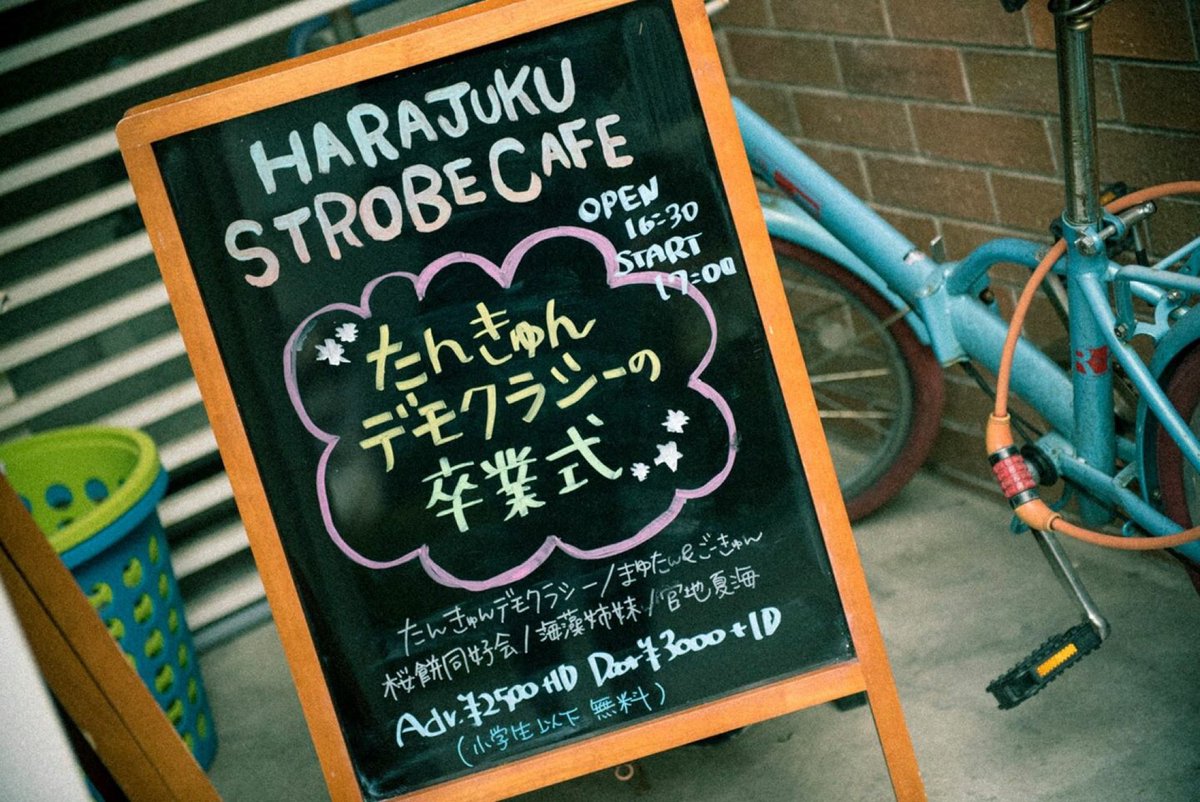 HARAJUKU
STROBE CAFE
OPEN
16:30
START
17:00
たんきゅん
デモクラシーの
卒業式
たんきゅんデモクラシー/まゆたん&ごーきゅん
桜餅同好会/海藻姉妹/官地夏海
Adv.¥2500+1D Door¥3000+1D
(小学生以下 無料)
R